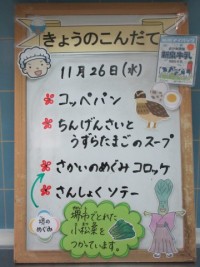 きょうのこんだて
11月26日(水)
コッペパン
ちんげんさいと
うずらたまごのスープ
さかいのめぐみコロッケ
さんしょくソテー
堺の
めぐみ
とれた
小松菜を
つかっています。